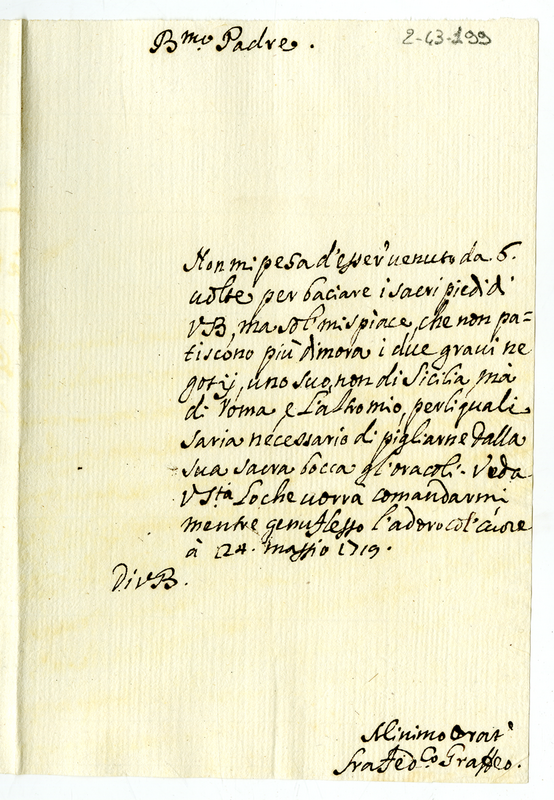 B.mo Padre.
2-43-199
Non mi pesa d'esser venuto da 6.
uolte per baciare i sacri piedi di
VB, ma sol mi spiace, che non pa=
tiscono più dimora i due graui ne
gotij, uno suo, non di Sicilia, mà
di Roma, e l'altro mio, per li quali
saria necessario di pigliarne dalla
sua sacra bocca gl'oracoli. Veda
V S.tà Lo che uorrà comandarmi
mentre genuflesso l'adoro col cuore
à 24. maggio 1719.
Di VB.
Minimo
fra